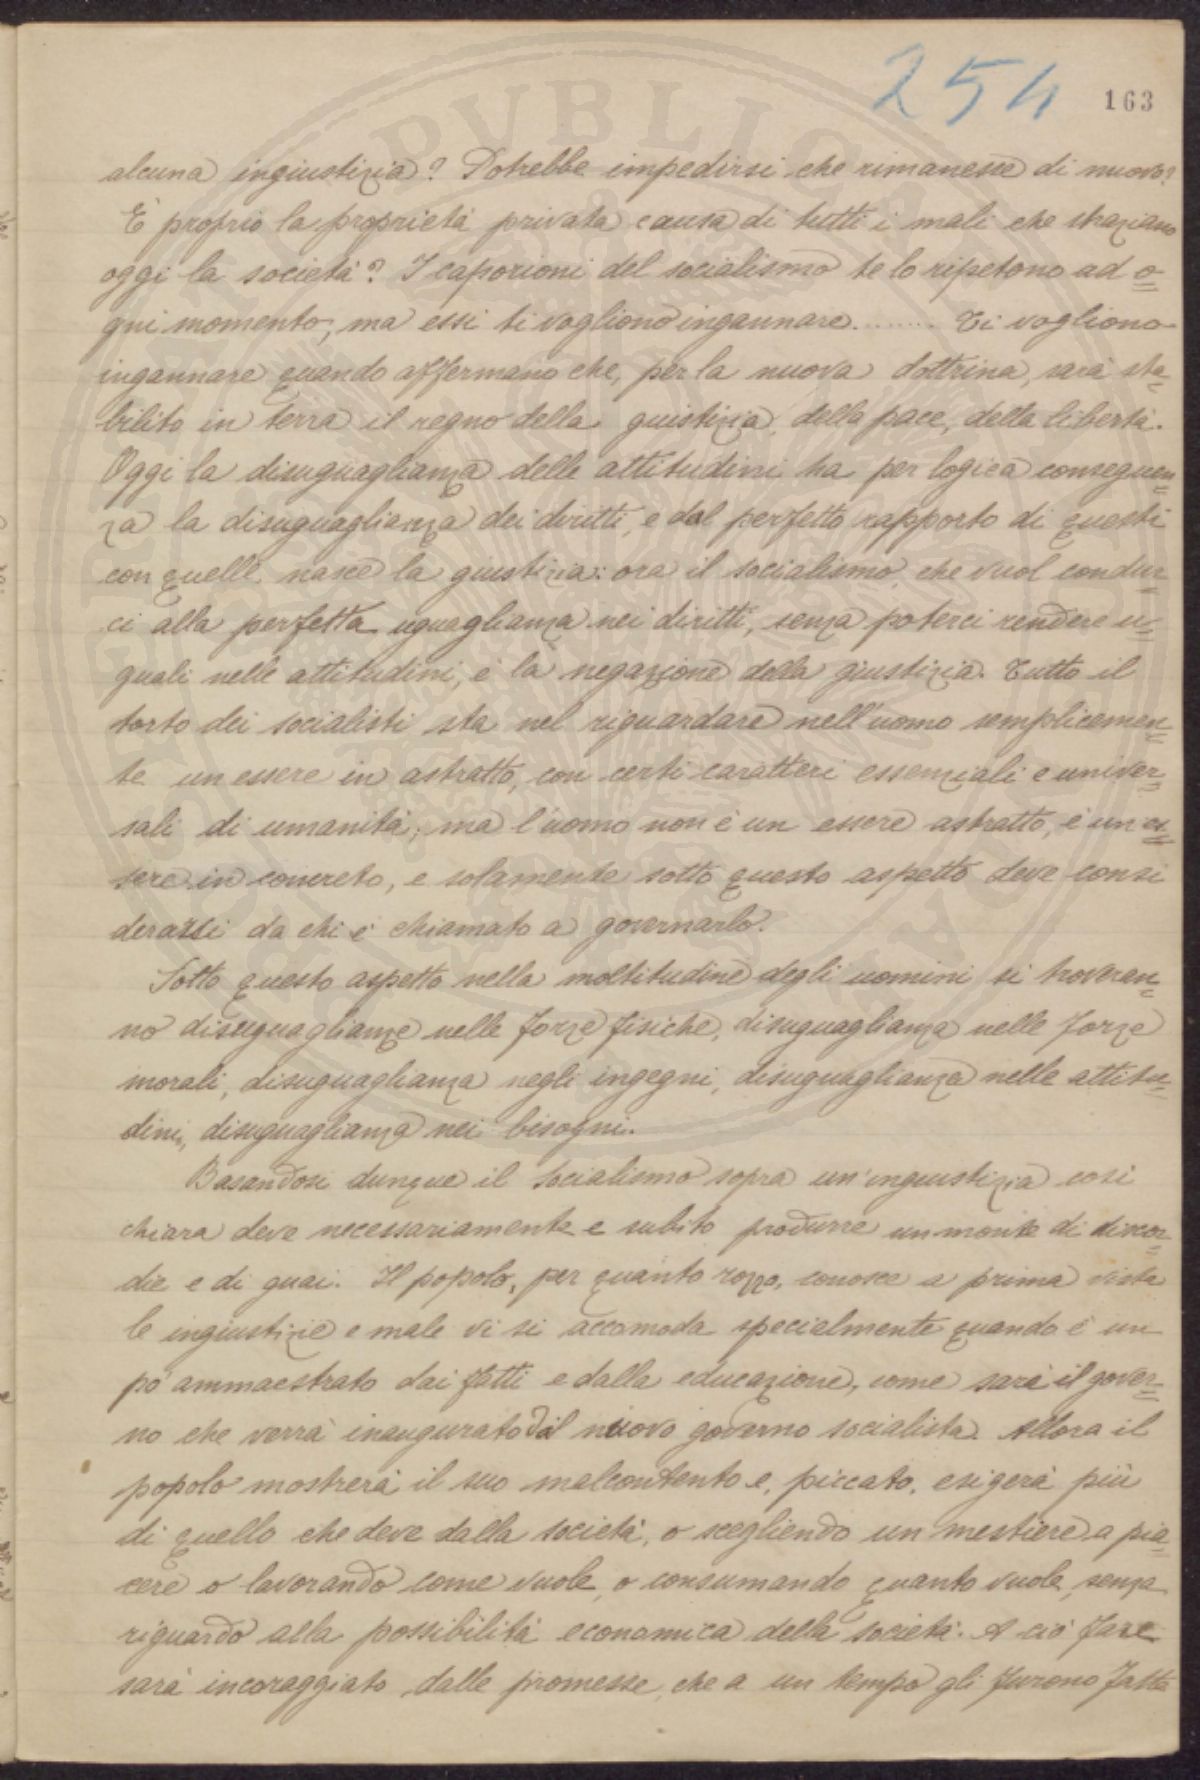 254 163
alcuna ingiustizia? Potrebbe impedirsi che rimanesse di nuovo?
È proprio la proprietà privata causa di tutti i mali che straziano
oggi la società? I caporioni del socialismo te lo ripetono ad o=
gni momento, ma essi ti vogliono ingannare........ Ti vogliono
ingannare quando affermano che, per la nuova dottrina, sarà sta=
bilito in terra il regno della giustizia, della pace, della libertà.
Oggi la disuguaglianza delle attitudini ha per logica conseguen=
za la disuguaglianza dei diritti, e dal perfetto rapporto di questi
con quelle nasce la giustizia: ora il socialismo, che vuol condur=
ci alla perfetta uguaglianza nei diritti, senza poterci rendere u=
guali nelle attitudini, è la negazione della giustizia. Tutto il
torto dei socialisti sta nel riguardare nell'uomo semplicemen=
te un essere in astratto, con certi caratteri essenziali e univer=
sali di umanità; ma l'uomo non è un essere astratto, è un es=
sere in concreto, e solamente sotto questo aspetto deve consi
derarsi da chi è chiamato a governarlo.
Sotto questo aspetto nella moltitudine degli uomini si troveran=
no disuguaglianze nelle forze fisiche, disuguaglianza nelle forze
morali, disuguaglianza negli ingegni, disuguaglianza nelle attitu=
dini, disuguaglianza nei bisogni.
Basandosi dunque il Socialismo sopra un'ingiustizia così
chiara deve necessariamente e subito produrre un monte di discor=
die e di guai. Il popolo, per quanto rozzo, conosce a prima vista
le ingiustizie e male vi si accomoda specialmente quando è un
pò ammaestrato dai fatti e dalla educazione, come sarà il gover=
no che verrà inaugurato dal nuovo governo socialista. Allora il
popolo mostrerà il suo malcontento e, piccato, esigerà più
di quello che deve dalla società, o scegliendo un mestiere a pia=
cere o lavorando come vuole, o consumando quanto vuole, senza
riguardo alla possibilità economica della società. A ciò fare
sarà incoraggiato dalle promesse, che a un tempo gli furono fatte